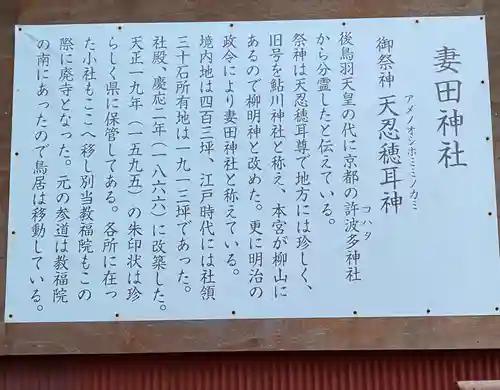 妻田神社
アメノオシホミミノカミ
御祭神 天忍穂耳神
後鳥羽天皇の代に京都の許波多神社
コハタ
から分霊したと伝えている。
祭神は天忍穂耳尊で地方には珍しく、
旧号を鮎川神社と称え、本宮が柳山に
あるので柳明神と改めた。更に明治の
政令により妻田神社と称えている。
境内地は四百三坪、江戸時代には社領
三十石所有地は一九一三坪であった。
社殿、慶応二年(一八六六)に改築した。
天正一九年(一五九五)の朱印状は珍
らしく県に保管してある。各所に在っ
た小社もここへ移し別当教福院もこの
際に廃寺となった。元の参道は教福院
の南にあったので鳥居は移動している。